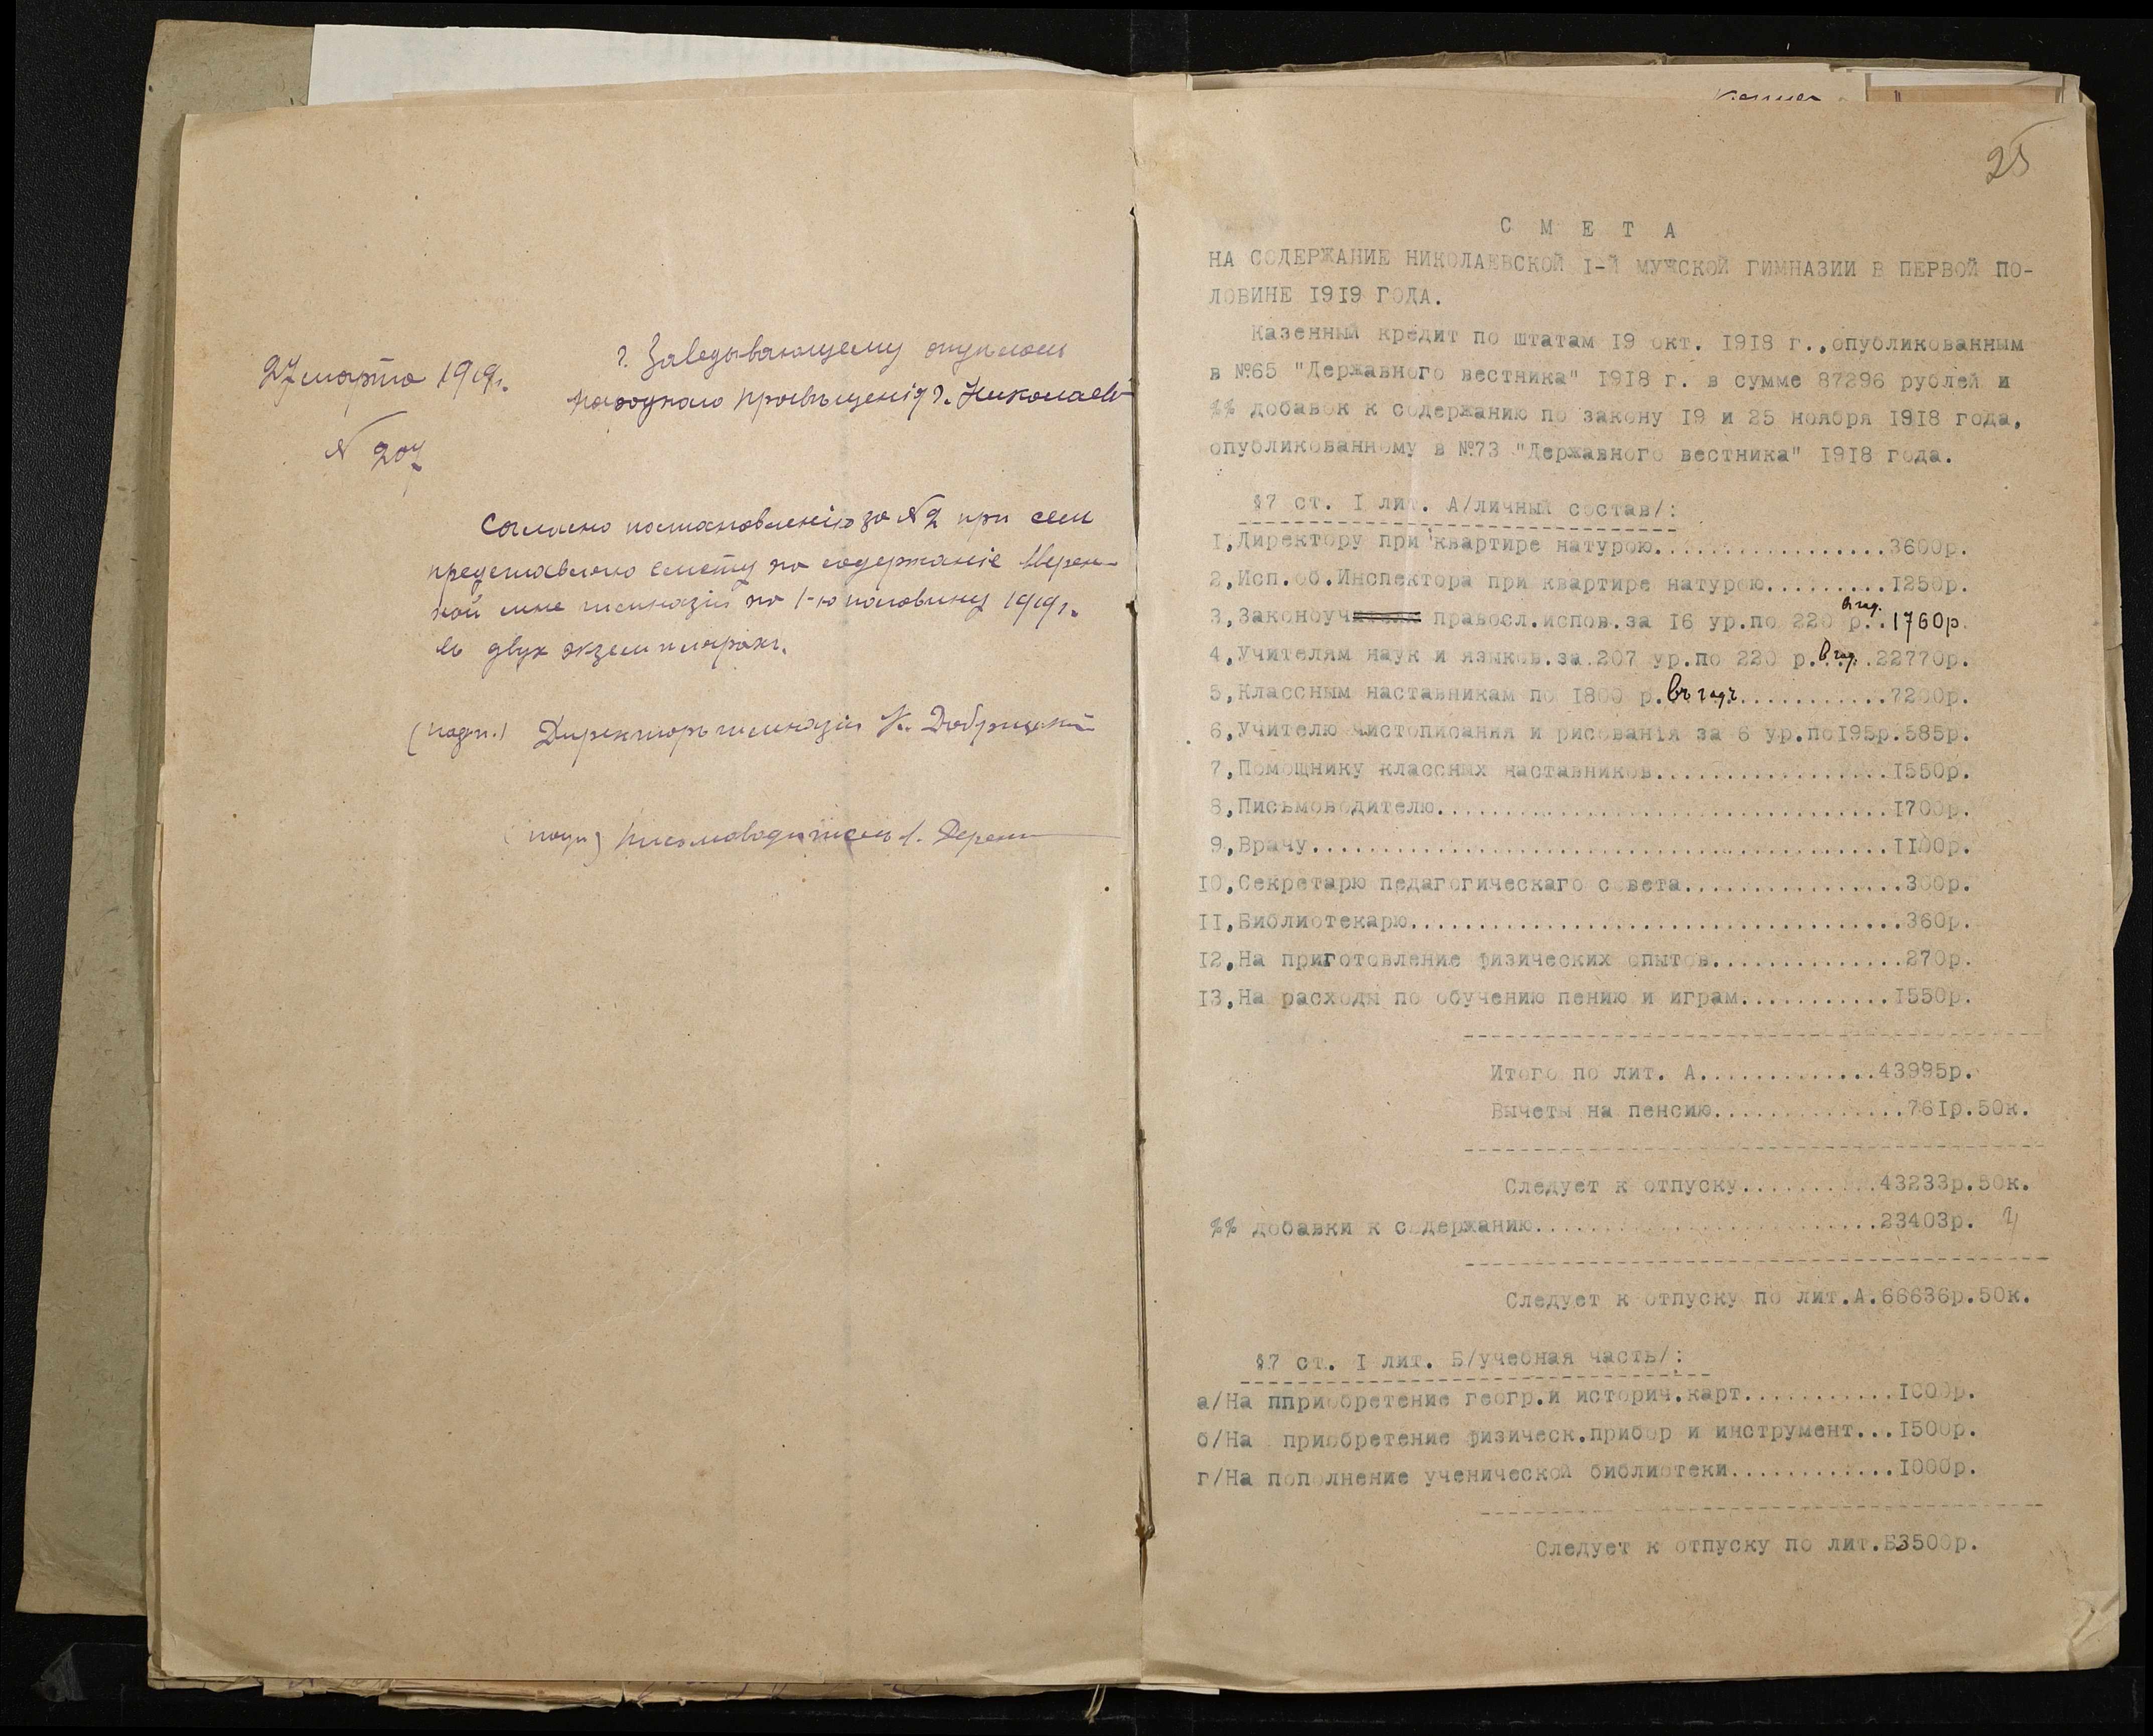 27 марта 1919г.
г. Заведывающему отделом
народнаго просвѣщенія г. Николаев
№ 207
Согласно постановленію за №2 при сем
представляю смету на содержаніе вверен-
ной мне гимназіи на 1-ю половину 1919г.
въ двух экземплярах.
(подп.) Директоръ гимназіи К. Добрицкій
(подп) Письмоводитель
25
С М Е Т А
НА СОДЕРЖАНИЕ НИКОЛАЕВСКОЙ I-Й МУЖСКОЙ ГИМНАЗИИ В ПЕРВОЙ ПО-
ЛОВИНЕ 1919 ГОДА.
Казенный кредит по штатам 19 окт. 1918 г.,опубликованным
в №65 "Державного вестника" 1918 г. в сумме 87296 рублей и
%% добавок к содержанию по закону 19 и 25 ноября 1918 года,
опубликованному в №73 "Державного вестника" 1918 года.
§7 ст. I лит. А/личный состав/:
1,Директору при квартире натурою.................3600р.
2,Исп.об.Инспектора при квартире натурою.........1250р.
3,Законоучителя правосл.испов.за 16 ур.по 220 р. в год. .1760р.
4,Учителям наук и языков.за 207 ур.по 220 р. в год. .22770р.
5,Классным наставникам по 1800 р. въ годъ...........7200р.
6,Учителю чистописания и рисованія за 6 ур.по195р.585р.
7,Помощнику классных наставников.................1550р.
8,Письмоводителю.................................1700р.
9,Врачу..........................................1100р.
10,Секретарю педагогическаго совета................300р.
11,Библиотекарю....................................360р.
12,На приготовление физических опытов..............270р.
13,На расходы по обучению пению и играм...........1550р.
Итого по лит. А.............43995р.
Вычеты на пенсию..............761р.50к.
Следует к отпуску..........43233р.50к.
%% добавки к содержанию.........................23403р.
Следует к отпуску по лит.А.66636р.50к.
§7 ст. I лит. Б/учебная часть/:
а/На пприобретение геогр.и историч.карт...........1000р.
б/На приобретение физическ.прибор и инструмент...1500р.
г/На пополнение ученической библиотеки............1000р.
Следует к отпуску по лит.Б3500р.